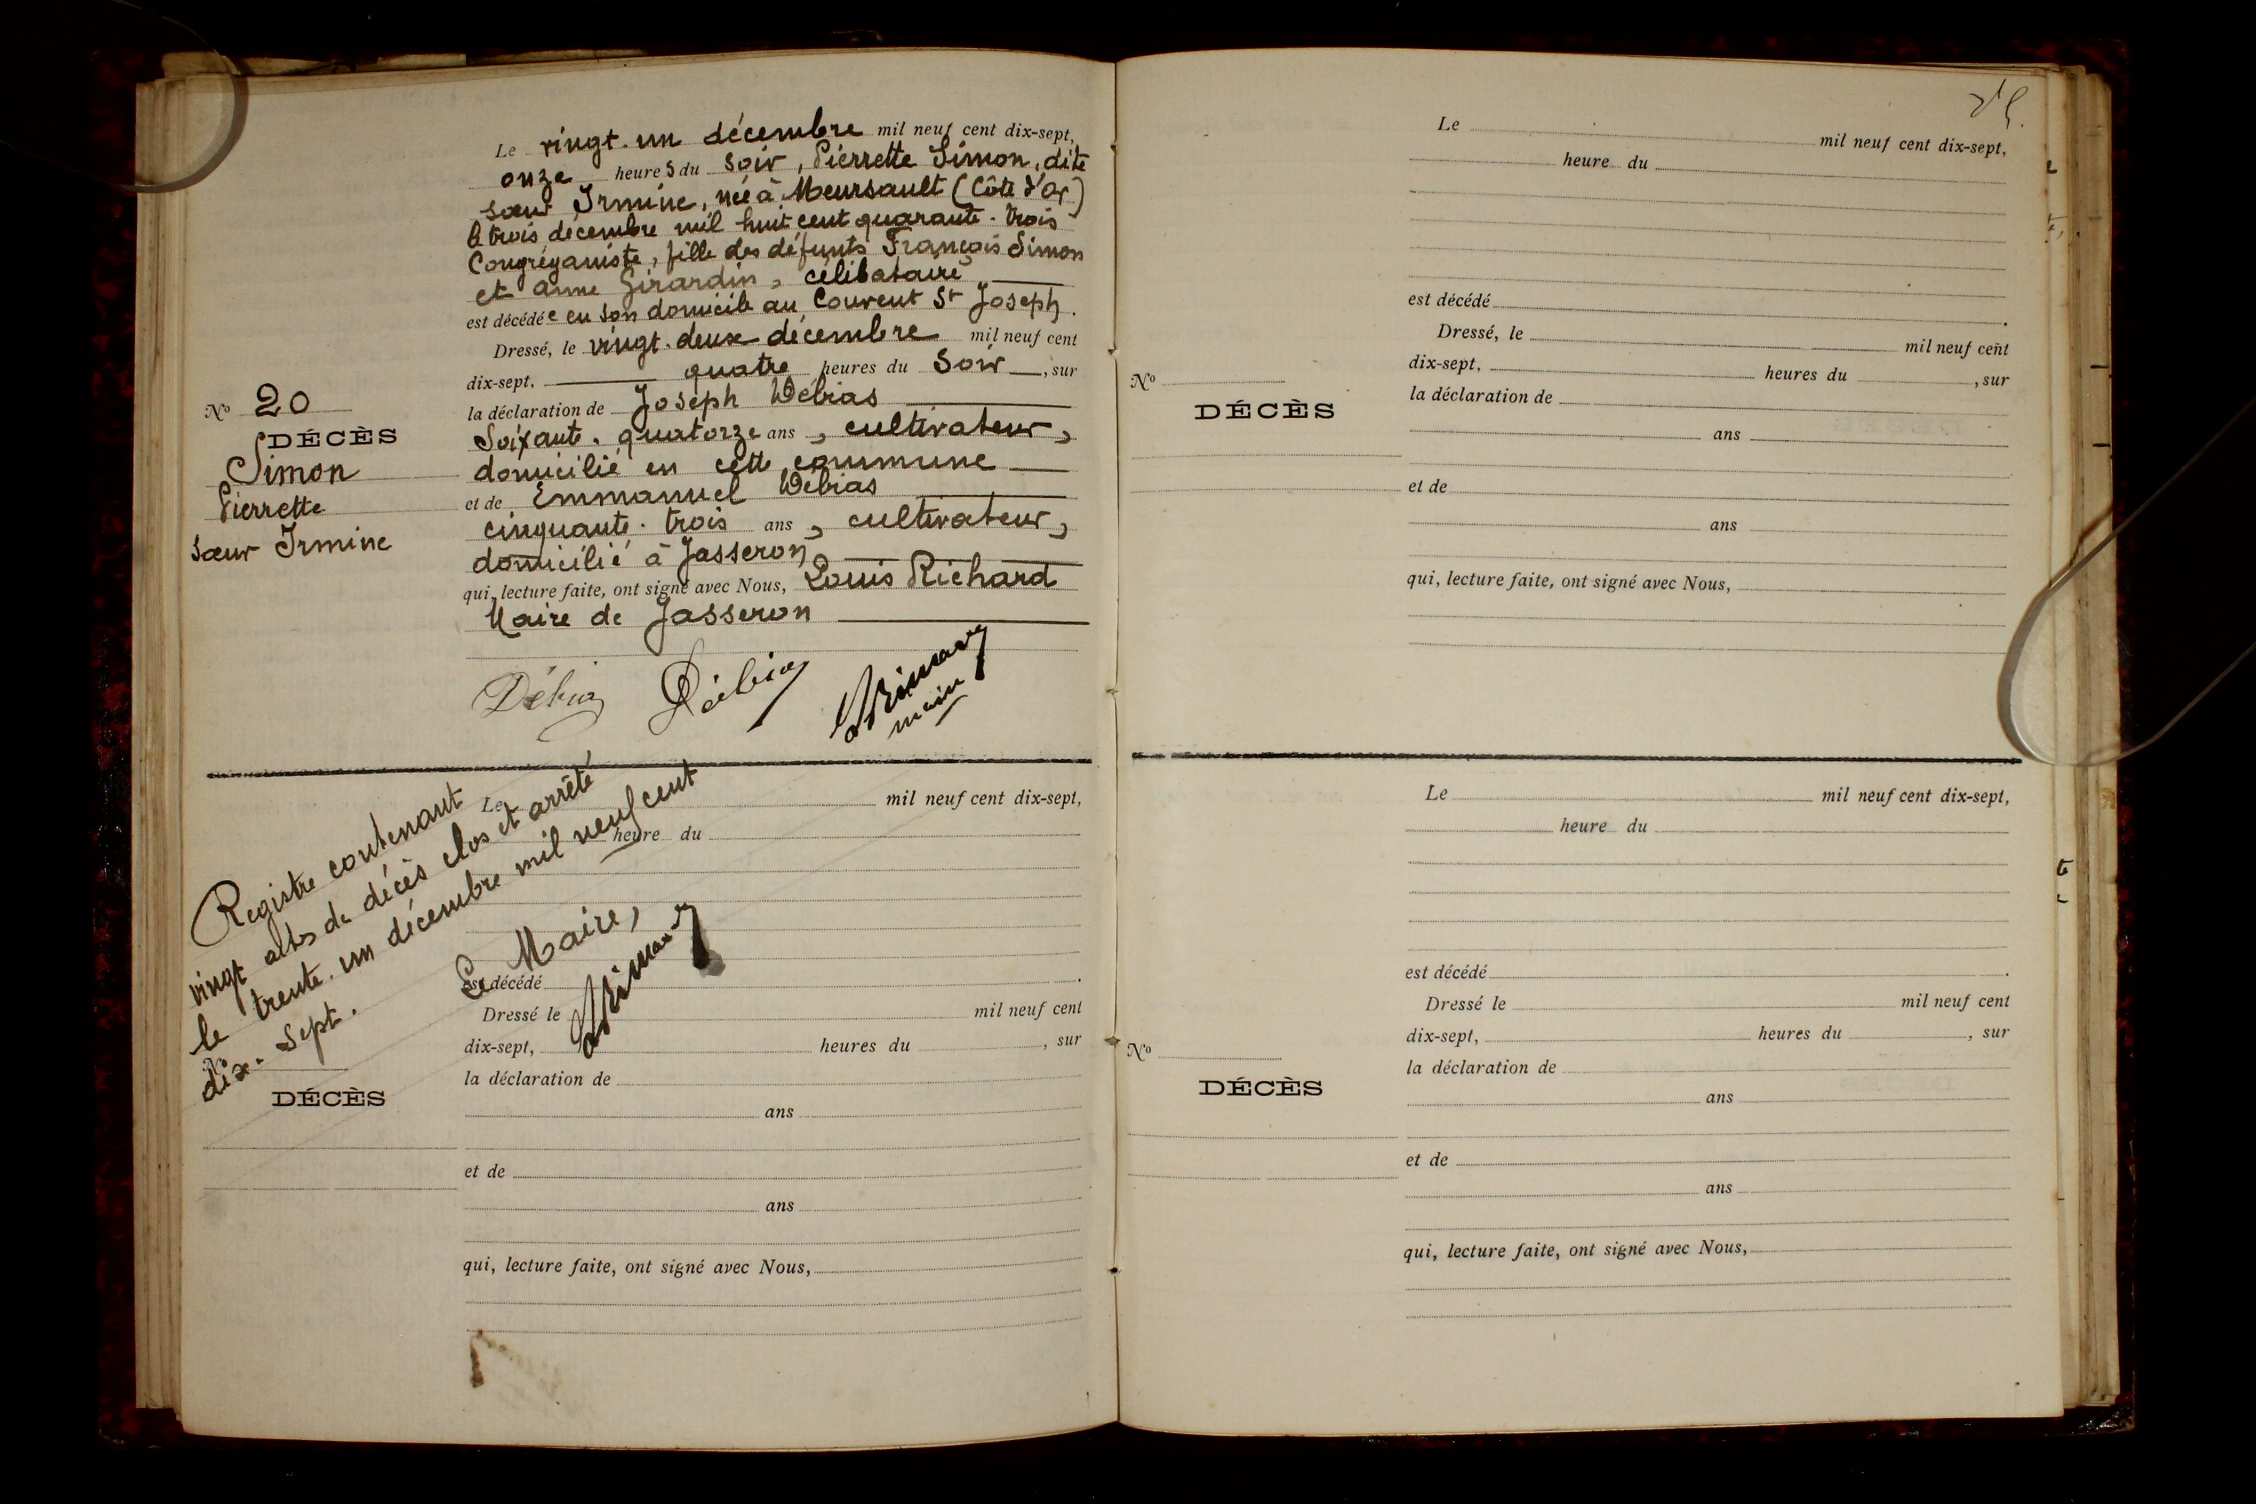 Le vingt-un décembre mil neuf cent dix-sept,
onze heures du soir, Pierrette Simon, dite
sœur Irmine, née à Meursault (Côte d'Or)
le trois décembre mil huit cent quarante-trois
Congréganiste, fille des défunts François Simon
et anne Girardin, célibataire
est décédée en son domicile au Couvent St Joseph.
Dressé, le vingt-deux décembre mil neuf cent
dix-sept, quatre heures du soir, sur
la déclaration de Joseph Débias
Soixante-quatorze ans, cultivateur,
domicilié en cette commune
et de Emmanuel Débias
cinquante-trois ans, cultivateur,
domicilié à Jasseron
qui, lecture faite, ont signé avec Nous, Louis Richard
Maire de Jasseron
No 20
DÉCÈS
Simon
Pierrette
sœur Irmine
Débias Débias
maire
Registre contenant
vingt actes de décès clos et arrêté
le trente-un décembre mil neuf cent
dix-sept.
Le Maire,
Le mil neuf cent dix-sept,
heure du
est décédé .
Dressé le mil neuf cent
dix-sept, heures du , sur
la déclaration de
ans
et de
ans
qui, lecture faite, ont signé avec Nous,
No
DÉCÈS
Le mil neuf cent dix-sept,
heure du
est décédé .
Dressé, le mil neuf cent
dix-sept, heures du , sur
la déclaration de
ans
et de
ans
qui, lecture faite, ont signé avec Nous,
No
DÉCÈS
Le mil neuf cent dix-sept,
heure du
est décédé .
Dressé le mil neuf cent
dix-sept, heures du , sur
la déclaration de
ans
et de
ans
qui, lecture faite, ont signé avec Nous,
No
DÉCÈS